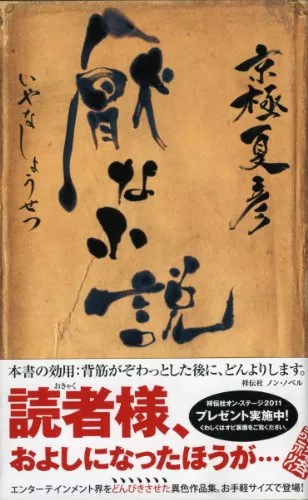 京極夏彦
厭な小説
いやなしょうせつ
本書の効用:背筋がぞわっとした後に、どんよりします。
祥伝社 ノン・ノベル
おきゃく
読者様、
およしになったほうが…
祥伝社オン・ステージ2011
プレゼント実施中!
くわしくはオビ裏面をご覧ください。
エンターテインメント界をどんびきさせた異色作品集。お手軽サイズで登場!